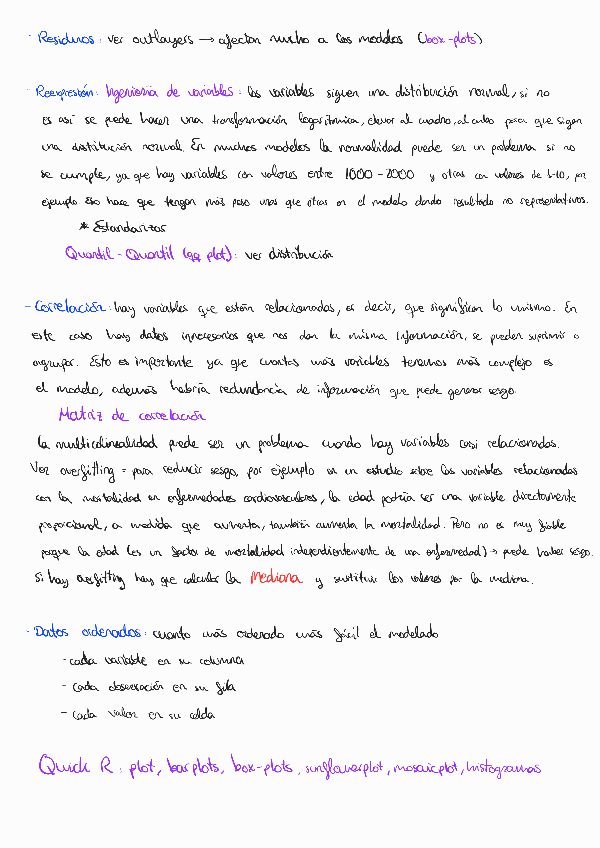 - Residuos: ver outlayers → afectan mucho a los modelos (box-plots)
- Reexpresión: Ingeniería de variables: las variables siguen una distribución normal, si no
es así se puede hacer una transformación logarítmica, elevar al cuadro, al cubo para que sigan
una distribución normal. En muchos modelos la normalidad puede ser un problema si no
se cumple, ya que hay variables con valores entre 1000-2000 y otras con valores de 1-10, por
ejemplo. Eso hace que tengan más peso unas que otras en el modelo dando resultado no representativos.
* Estandarizar
Quantil-Quantil (qq plot): ver distribución
- Correlación: hay variables que están relacionadas, es decir, que significan lo mismo. En
este caso hay datos innecesarios que nos dan la misma información, se pueden suprimir o
agrupar. Esto es importante ya que cuantas más variables tenemos más complejo es
el modelo, además habría redundancia de información que puede generar sesgo.
Matriz de correlación
la multicolinealidad puede ser un problema cuando hay variables casi relacionadas.
Ver overfitting = para reducir sesgo, por ejemplo en un estudio sobre las variables relacionadas
con la mortalidad en enfermedades cardiovasculares, la edad podría ser una variable directamente
proporcional, a medida que aumenta, también aumenta la mortalidad. Pero no es muy fiable
porque la edad (es un factor de mortalidad independientemente de una enfermedad) → puede haber sesgo.
Si hay overfitting hay que calcular la Mediana y sustituir los valores por la mediana.
- Datos ordenados: cuanto más ordenado más fácil el modelado
- cada variable en su columna
- cada observación en su fila
- cada valor en su celda
Quick R: plot, barplots, box-plots, sunflowerplot, mosaicplot, histogramas